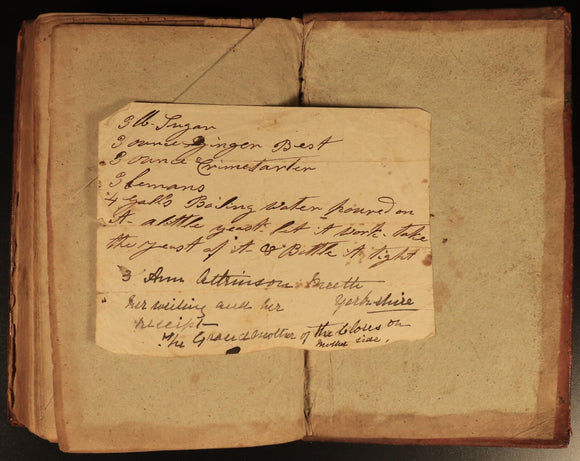 3 lb. Sugar
3 ounce Ginger Best
3 ounce Crimetarter
3 Lemans
4 Gall's Boiling water poured on
it a little yeast let it work take
the yeast of it & Bottle it tight
3 Ann Attrinson
her writing and her Yorkshire
receipt
The Grandmother of the Closes on
Mother side.